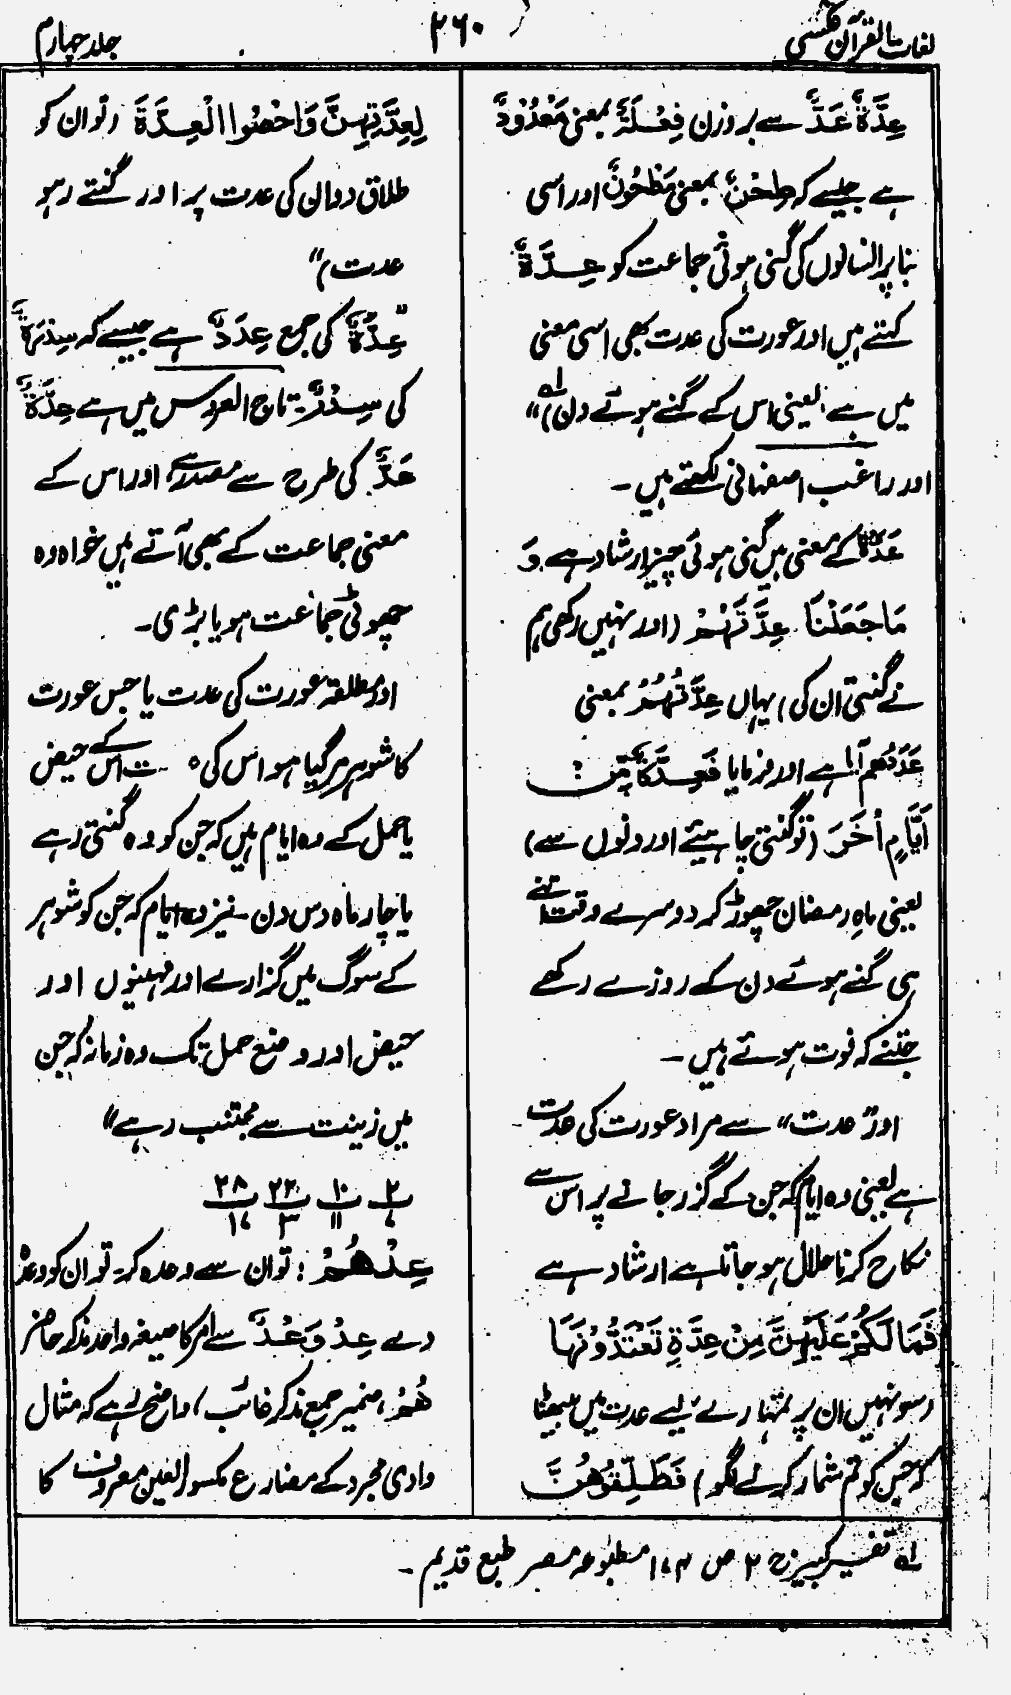 لغات القرآن
۲۶۰
جلد چہارم
عِدَّةٌ عَدٌّ سے بر وزن فِعْلَةٌ بمعنی مَعْدُوْدٌ
ہے جیسے کہ طِحْنٌ بمعنی مَطْحُوْنٌ اور اسی
بنا پر انسانوں کی گنی ہوئی جماعت کو عِدَّةٌ
کہتے ہیں اور عورت کی عدت بھی اسی معنی
میں ہے (یعنی اس کے گنے ہوئے دن) لہ"
اور راغب اصفہانی لکھتے ہیں۔
عِدَّةٌ کے معنی ہیں گنی ہوئی چیز ارشاد ہے وَ
مَا جَعَلْنَا عِدَّتَهُمْ (اور نہیں رکھی ہم
نے گنتی ان کی) یہاں عِدَّتُهُمْ بمعنی
عَدَدُهُم آیا ہے اور فرمایا فَعِدَّةٌ مِّنْ
اَيَّامٍ اُخَرَ (تو گنتی چاہیئے اور دنوں سے)
یعنی ماہِ رمضان چھوڑ کر دوسرے وقت اتنے
ہی گنے ہوئے دن کے روزے رکھے
جتنے کہ فوت ہوئے ہیں۔
اور "عدت" سے مراد عورت کی عدت
ہے یعنی وہ ایام کہ جن کے گزر جانے پر اس سے
نکاح کرنا حلال ہو جاتا ہے ارشاد ہے
فَمَا لَكُمْ عَلَيْهِنَّ مِنْ عِدَّةٍ تَعْتَدُّوْنَهَا
(سو نہیں ان پر تمہارے لیے عدت میں بیٹھنا
کہ جس کو تم شمار کرنے لگو) فَطَلِّقُوْهُنَّ
لِعِدَّتِهِنَّ وَاَحْصُوا الْعِدَّةَ (تو ان کو
طلاق دو ان کی عدت پر اور گنتے رہو
عدت)"
"عِدَّةٌ کی جمع عِدَدٌ ہے جیسے کہ سِدْرَةٌ
کی سِدَرٌ، تاج العروس میں ہے عِدَّةٌ
عَدٌّ کی طرح سے مصدر ہے اور اس کے
معنی جماعت کے بھی آتے ہیں خواہ وہ
چھوٹی جماعت ہو یا بڑی۔
اور مطلقہ عورت کی عدت یا جس عورت
کا شوہر مر گیا ہو اس کی عدت اس کے حیض
یا حمل کے وہ ایام ہیں کہ جن کو وہ گنتی رہے
یا چار ماہ دس دن۔ نیز وہ ایام کہ جن کو شوہر
کے سوگ میں گزارے اور مہینوں اور
حیض اور وضع حمل تک وہ زمانہ کہ جن
میں زینت سے مجتنب رہے"
۲/۷ ۱۰/۱۱ ۲۲/۳ ۲۸/۱۷
عِدْهُمْ: تو ان سے وعدہ کر۔ تو ان کو وعدہ
دے عِدْ وَعْدٌ سے امر کا صیغہ واحد مذکر حاضر
هُمْ، ضمیر جمع مذکر غائب، واضح رہے کہ مثال
وادی مجرد کے مضارع مکسور العین معروف کا
لہ تفسیر کبیر ج ۲ ص ۱۷۴ مطبوعہ مصر طبع قدیم۔